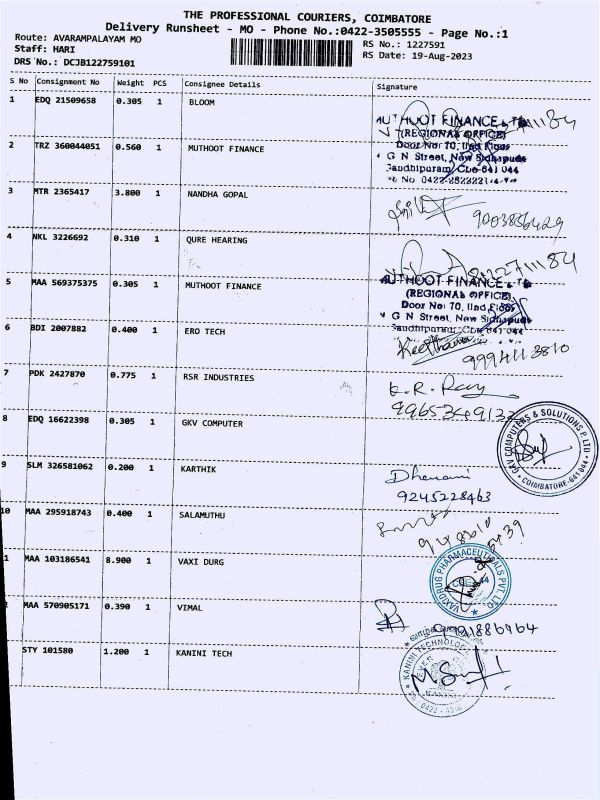 THE PROFESSIONAL COURIERS, COIMBATORE
Delivery Runsheet - MO - Phone No.:0422-3505555 - Page No.:1
Route: AVARAMPALAYAM MO
RS No.: 1227591
Staff: HARI
RS Date: 19-Aug-2023
DRS No.: DCJB122759101
S No Consignment No Weight PCS Consignee Details Signature
1 EDQ 21509658 0.305 1 BLOOM
MUTHOOT FINANCE LTD
(REGIONAL OFFICE)
Door No: 70, IInd Floor
2 TRZ 360044051 0.560 1 MUTHOOT FINANCE
G N Street, New Sidhapudu
Gandhipuram, Cbe-641 044
3 MTR 2365417 3.800 1 NANDHA GOPAL
9003836429
4 NKL 3226692 0.310 1 QURE HEARING
5 MAA 569375375 0.305 1 MUTHOOT FINANCE
MUTHOOT FINANCE LTD
(REGIONAL OFFICE)
Door No: 70, IInd Floor
G N Street, New Sidhapudu
Gandhipuram, Cbe-641 044
6 BDI 2007882 0.400 1 ERO TECH
Keerthana
7 PDK 2427870 0.775 1 RSR INDUSTRIES
K.R. Ray
8 EDQ 16622398 0.305 1 GKV COMPUTER
GKV COMPUTERS & SOLUTIONS P.LTD
COIMBATORE-641 044
9 SLM 326581062 0.200 1 KARTHIK
Dharani
9245228463
10 MAA 295918743 0.400 1 SALAMUTHU
1 MAA 103186541 8.900 1 VAXI DURG
VAXIDRUG PHARMACEUTICALS PVT. LTD
2 MAA 570905171 0.390 1 VIMAL
STY 101580 1.200 1 KANINI TECH
KANINI TECHNOLOGY